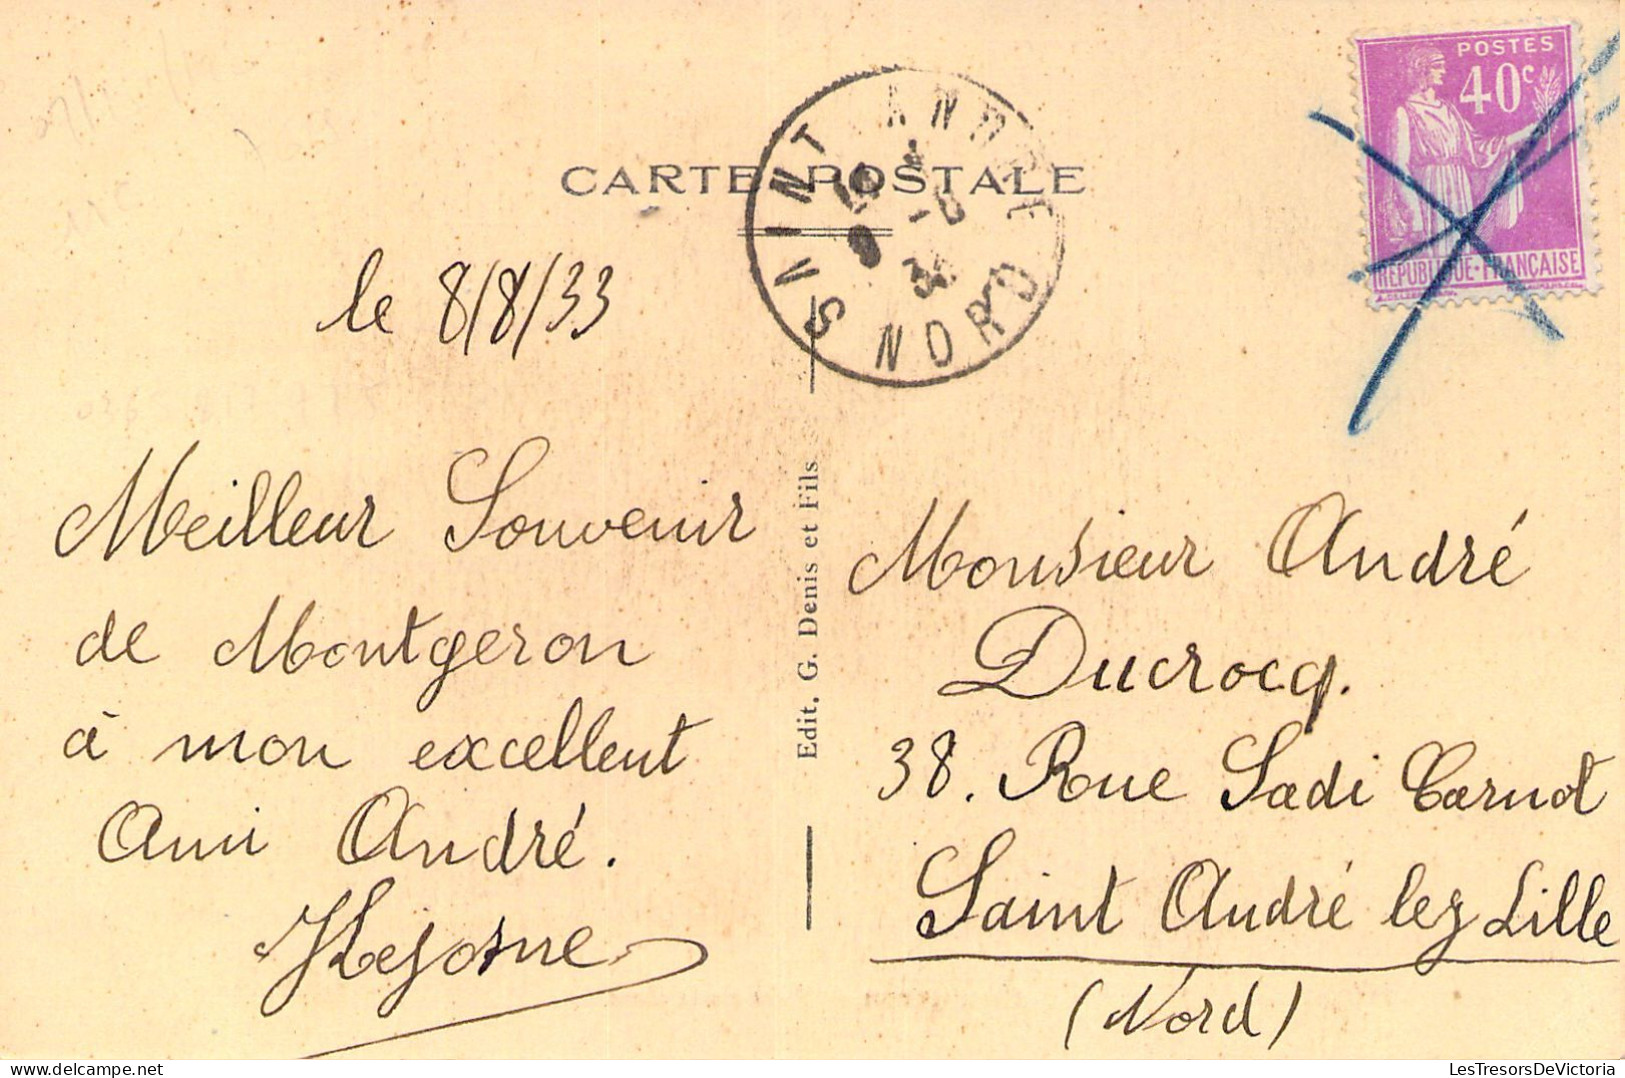 CARTE POSTALE
POSTES
40c
RÉPUBLIQUE-FRANÇAISE
SAINT ANDRE
NORD
le 8/8/33
Meilleur Souvenir
de Montgeron
à mon excellent
Ami André.
Edit. G. Denis et Fils
Monsieur André
Ducrocq.
38. Rue Sadi Carnot
Saint André lez Lille
(Nord)
LesTresorsDeVictoria.com